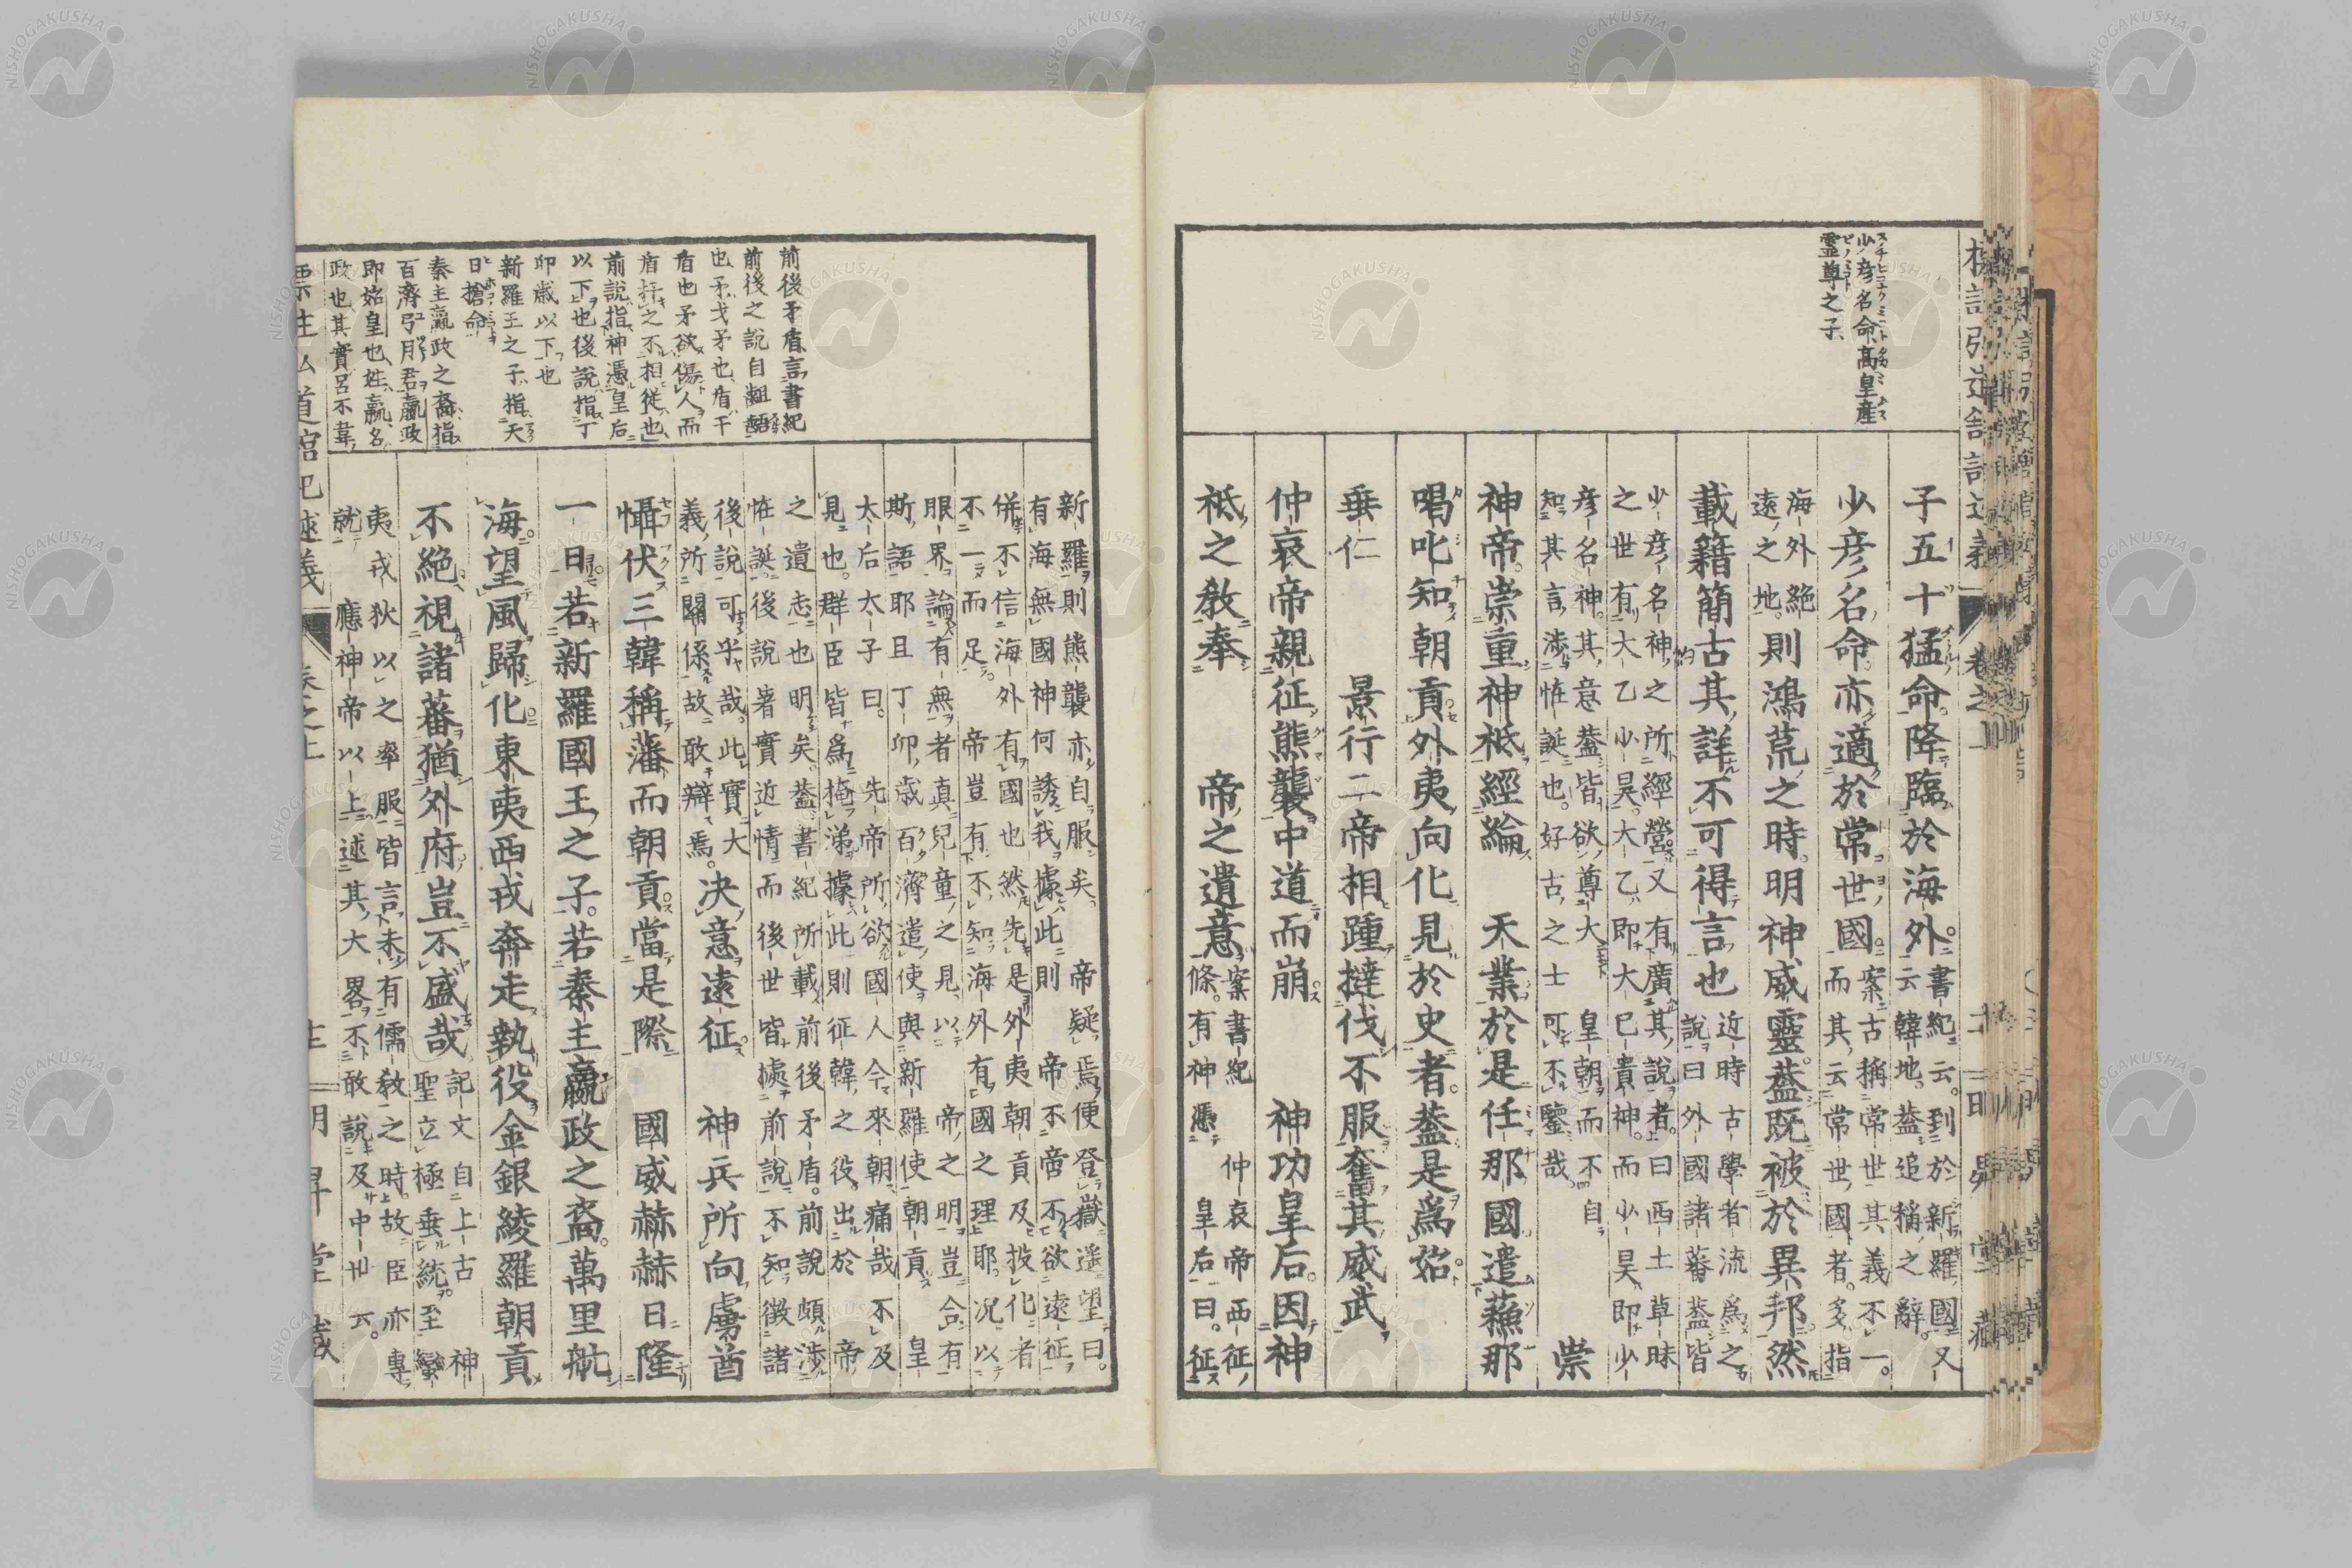 標註弘道館記述義
卷之上
明昇堂藏
少彥名命高皇產
靈尊之子
子五十猛命降臨於海外書紀云到於新羅國又
云韓地蓋追稱之辭
少彥名命亦適於常世國案古稱常世其義不一
而其云常世國者多指
海外絕
遠之地則鴻荒之時明神威靈蓋既被於異邦然
載籍簡古其詳不可得言也近時古學者流為之
說曰外國諸蕃蓋皆
少彥名神之所經營又有廣其說者曰西土草昧
之世有大乙少昊大乙即大已貴神而少昊即少
彥名神其意蓋皆欲尊大皇朝而不自
知其言涉恠誕也好古之士可不鑒哉崇
神帝崇重神祇經綸天業於是任那國遣蘓那
喝叱知朝貢外夷向化見於史者蓋是為始
垂仁景行二帝相踵撻伐不服奮其威武
仲哀帝親征熊襲中道而崩神功皇后因神
祇之教奉帝之遺意案書紀仲哀帝西征
條有神憑皇后曰征
前後矛盾言書紀
前後之說自齟齬
也矛戈矛也盾干
盾也矛欲傷人而
盾扞之不相從也
前說指神憑皇后
以下也後說指丁
卯歲以下也
新羅王之子指天
日槍命
秦主嬴政之裔指
百濟弓月君嬴政
即始皇也姓嬴名
政也其實呂不韋
新羅則熊襲亦自服矣帝疑焉便登嶽遥望曰
有海無國神何誘我據此則帝不啻不欲遠征
併不信海外有國也然先是外夷朝貢及投化者
不一而足帝豈有不知海外有國之理耶況以
眼界論有無者真兒童之見以帝之明豈合有
斯語耶且丁卯歲百濟遣使與新羅使朝貢皇
太后太子曰先帝所欲國人今來朝痛哉不及
見也群臣皆為掩涕據此則征韓之役出於帝
之遺志也明矣蓋書紀所載前後矛盾前說頗涉
恠誕後說著實近情而後世皆據前說不知徵諸
後說可乎哉此實大
義所關係故敢辯焉決意遠征神兵所向虜酋
懾伏三韓稱藩而朝貢當是際國威赫赫日隆
一日若新羅國王之子若秦主嬴政之裔萬里航
海望風歸化東夷西戎奔走執役金銀綾羅朝貢
不絕視諸蕃猶外府豈不盛哉記文自上古神
聖立極垂統至蠻
夷戎狄以之率服皆言未有儒教之時故臣亦專
就應神帝以上述其大畧不敢說及中卅云